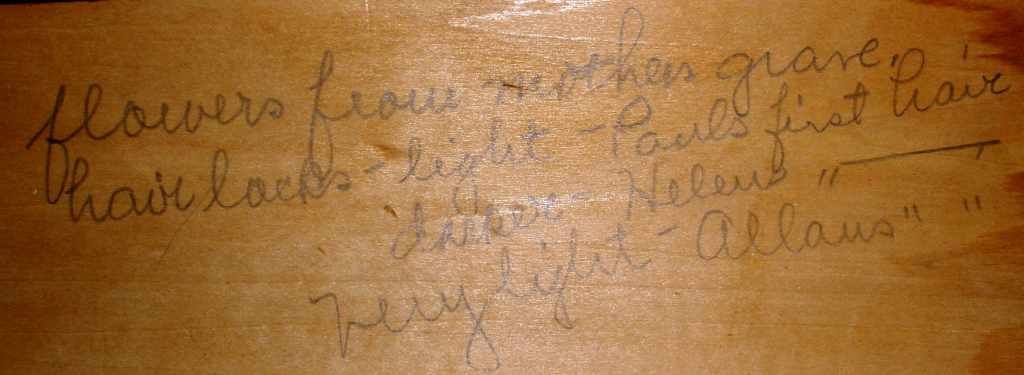 flowers from mothers grave.
hair locks - light - Pauls first hair
darker - Helens " ——— "
very light - Allans " "